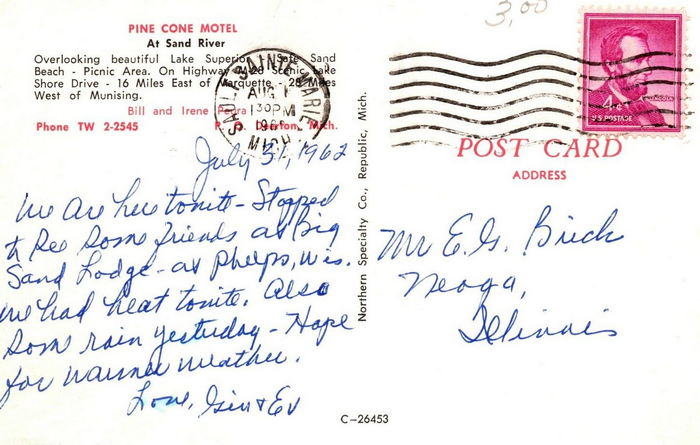 3.00
PINE CONE MOTEL
At Sand River
Overlooking beautiful Lake Superior Safe Sand
Beach - Picnic Area. On Highway M28 Scenic Lake
Shore Drive - 16 Miles East of Marquette - 28 Miles
West of Munising.
Bill and Irene
Phone TW 2-2545 Deerton, Mich.
SAULT SAINTE MARIE
AUG 1
130PM
196
MICH
4¢
LINCOLN
U.S. POSTAGE
POST CARD
ADDRESS
July 31, 1962
We are here tonite - Stopped
to see some friends at Big
Sand Lodge - at Phelps, Wis.
We had heat tonite. Also
some rain yesterday - Hope
for warmer weather.
Love, Gin & Ev
Northern Specialty Co., Republic, Mich.
Mr E. G. Birch
Neoga,
Illinois
C-26453